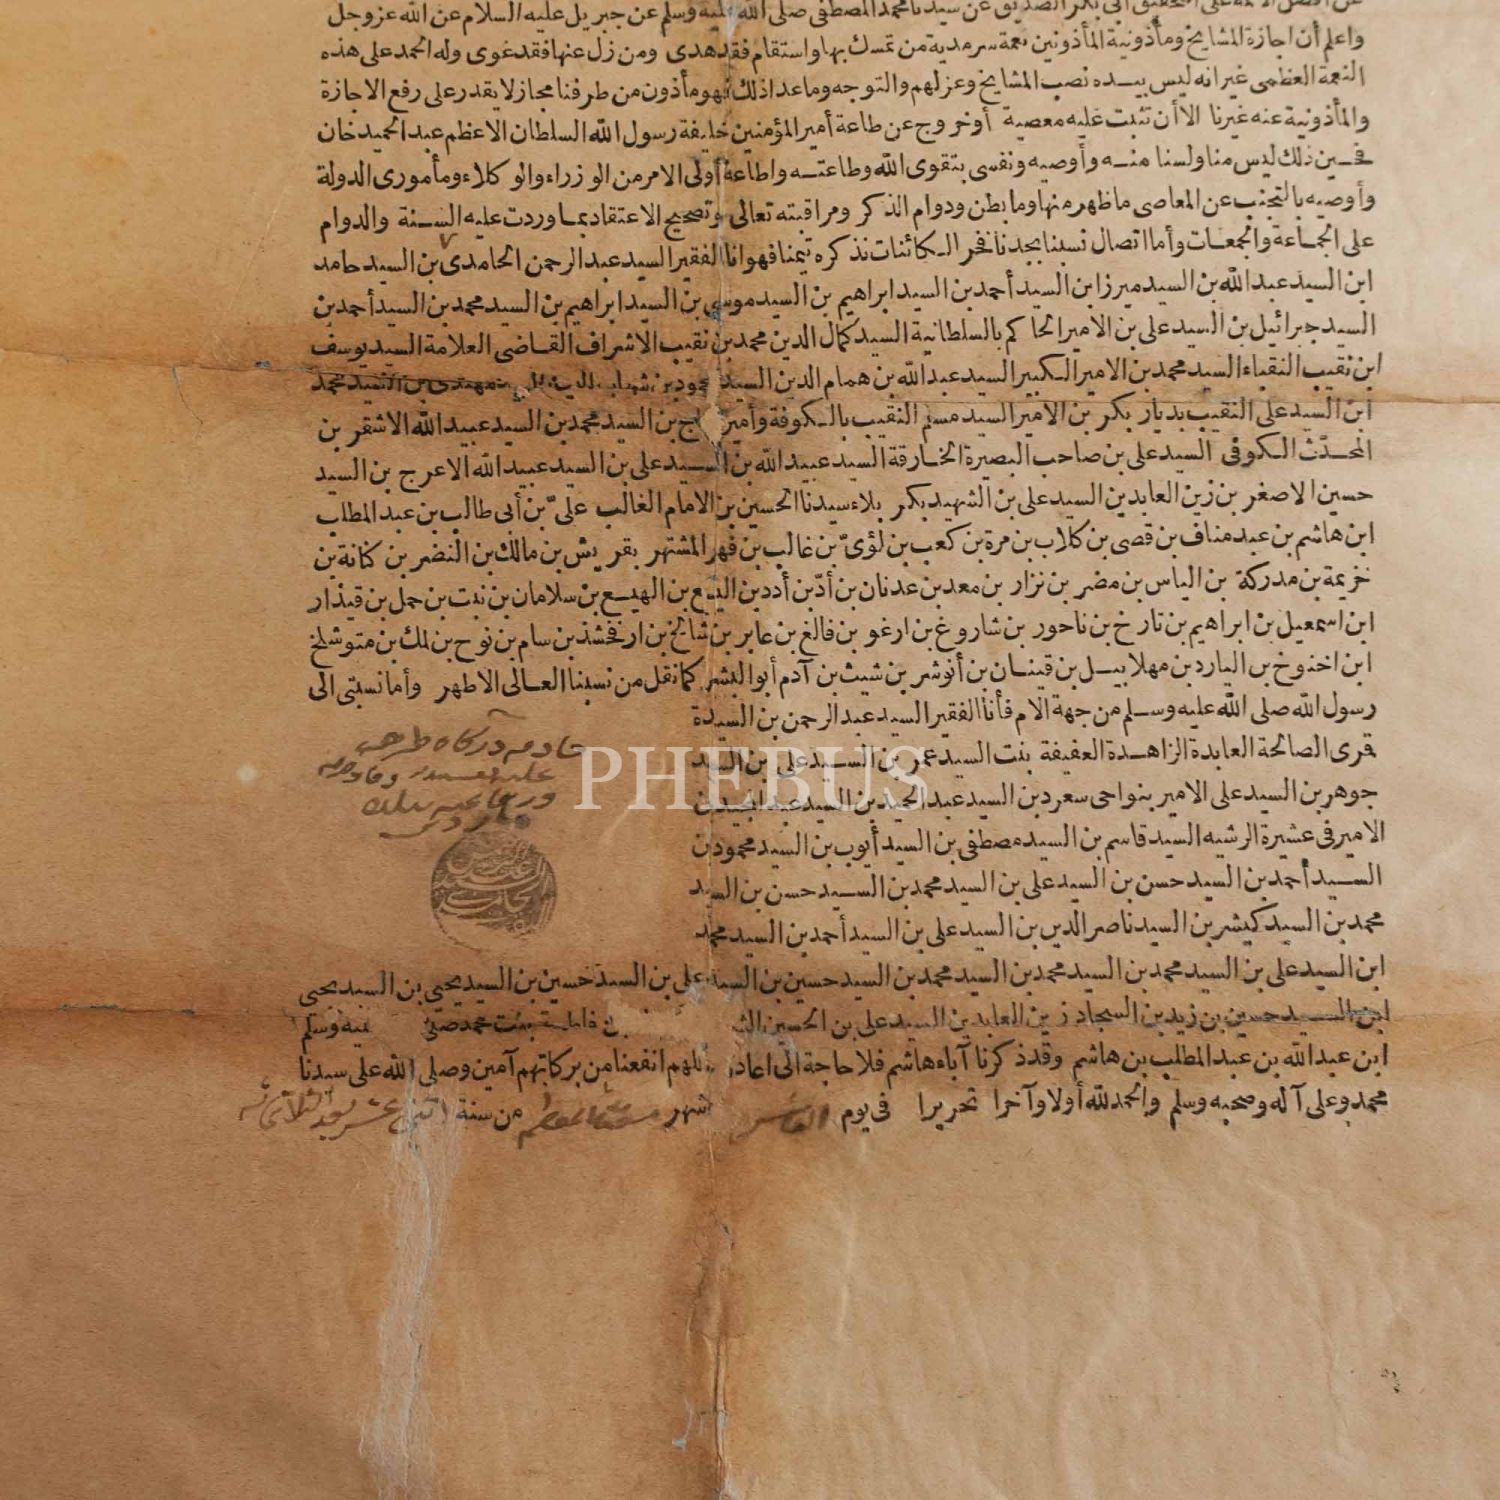 عن أفضل الأمة على التحقيق أبى بكر الصديق عن سيدنا محمد المصطفى صلى الله عليه وسلم عن جبريل عليه السلام عن الله عز وجل
واعلم أن اجازة المشايخ ومأذونية المأذونين نعمة سرمدية من تمسك بها واستقام فقد هدى ومن زل عنها فقد غوى وله الحمد على هذه
النعمة العظمى غير انه ليس بيده نصب المشايخ وعزلهم والتوجه وما عدا ذلك فهو مأذون من طرفنا مجاز لا يقدر على رفع الاجازة
والمأذونية عنه غيرنا الا أن تثبت عليه معصية أو خروج عن طاعة أمير المؤمنين خليفة رسول الله السلطان الاعظم عبد الحميد خان
فحين ذلك ليس منا ولسنا منه وأوصيه ونفسى بتقوى الله وطاعته واطاعة أولى الامر من الوزراء والوكلاء ومأمورى الدولة
وأوصيه بالتجنب عن المعاصى ما ظهر منها وما بطن ودوام الذكر ومراقبته تعالى وتصحيح الاعتقاد بما وردت عليه السنة والدوام
على الجماعة والجمعات وأما اتصال نسبنا بجدنا فخر الكائنات نذكره تيمنا فهو انا الفقير السيد عبد الرحمن الحامدى بن السيد حامد
ابن السيد عبد الله بن السيد ميرزا بن السيد أحمد بن السيد ابراهيم بن السيد موسى بن السيد ابراهيم بن السيد محمد بن السيد أحمد بن
السيد جبرائيل بن السيد على بن الامير الحاكم بالسلطانية السيد كمال الدين محمد بن نقيب الاشراف القاضى العلامة السيد يوسف
ابن نقيب النقباء السيد محمد بن الامير الكبير السيد عبد الله بن همام الدين السيد محمود بن شهاب الدين مهتدى بن السيد محمد
ابن السيد على النقيب بديار بكر بن الامير السيد مسلم النقيب بالكوفة وأمير الحاج بن السيد محمد بن السيد عبيد الله الاشقر بن
المحدث الكوفى السيد على بن صاحب البصيرة الخارقة السيد عبيد الله بن السيد على بن السيد عبيد الله الاعرج بن السيد
حسين الاصغر بن زين العابدين السيد على بن الشهيد بكربلاء سيدنا الحسين بن الامام الغالب على بن أبى طالب بن عبد المطلب
ابن هاشم بن عبد مناف بن قصى بن كلاب بن مرة بن كعب بن لؤى بن غالب بن فهر المشتهر بقريش بن مالك بن النضر بن كنانة بن
خزيمة بن مدركة بن الياس بن مضر بن نزار بن معد بن عدنان بن أدّ بن أدد بن اليسع بن الهميسع بن سلامان بن نبت بن حمل بن قيذار
ابن اسمعيل بن ابراهيم بن تارخ بن ناحور بن شاروغ بن ارغو بن فالغ بن عابر بن شالخ بن ارفخشذ بن سام بن نوح بن لمك بن متوشلخ
ابن اخنوخ بن اليارد بن مهلاييل بن قينان بن أنوشر بن شيث بن آدم أبو البشر كما نقل من نسبنا العالى الاطهر وأما نسبتى الى
رسول الله صلى الله عليه وسلم من جهة الام فأنا الفقير السيد عبد الرحمن بن السيدة
قمرى الصالحة العابدة الزاهدة العفيفة بنت السيد عمر بن السيد على بن السيد
جوهر بن السيد على الامير بنواحى سعرد بن السيد عبد الحميد بن السيد عبد المجيد بن
الامير فى عشيرة الرشيه السيد قاسم بن السيد مصطفى بن السيد أيوب بن السيد محمود بن
السيد أحمد بن السيد حسن بن السيد على بن السيد محمد بن السيد حسن بن السيد
محمد بن السيد كيشر بن السيد ناصر الدين بن السيد على بن السيد أحمد بن السيد محمد
ابن السيد على بن السيد محمد بن السيد محمد بن السيد محمد بن السيد حسين بن السيد على بن السيد حسين بن السيد يحيى بن السيد يحيى
ابن السيد حسين بن زيد بن السجاد زين العابدين السيد على بن الحسين بن فاطمة بنت محمد صلى عليه وسلم
ابن عبد الله بن عبد المطلب بن هاشم وقد ذكرنا آباء هاشم فلا حاجة الى اعادة اللهم انفعنا من بركاتهم آمين وصلى الله على سيدنا
محمد وعلى آله وصحبه وسلم والحمد لله أولا وآخرا تحريرا فى يوم العاشر شهر من سنة اثنى عشر بعد الثلاثمائة
PHEBUS